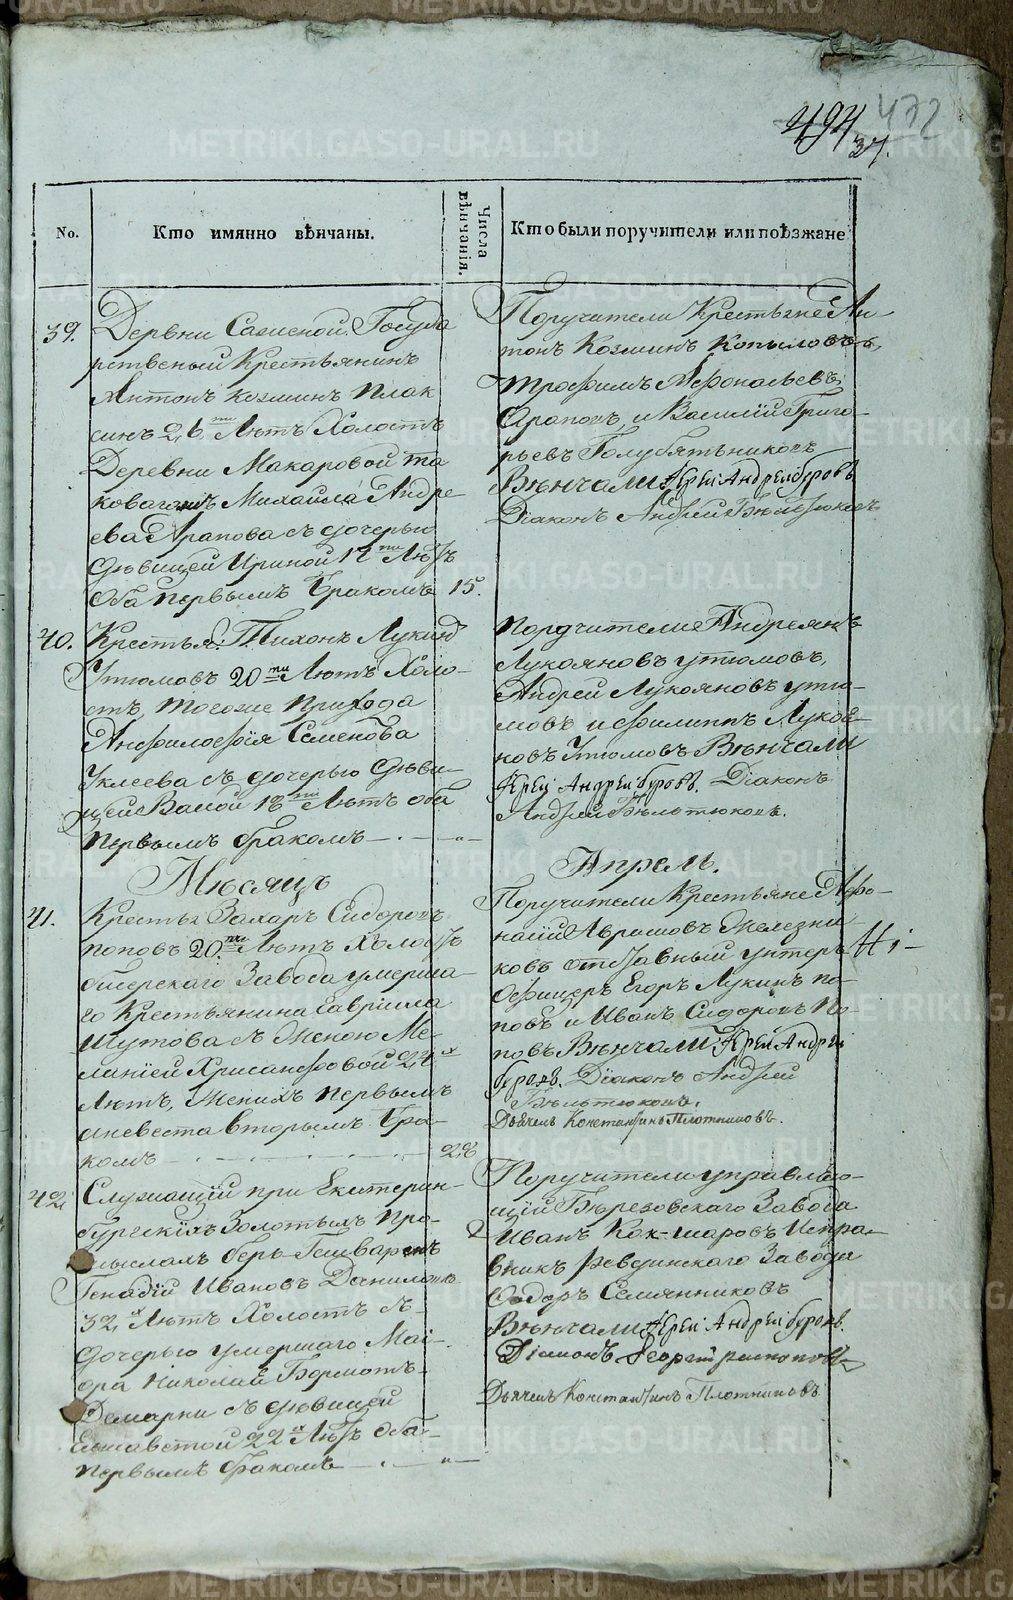 494 472
37.
No.
Кто имянно вѣнчаны.
Числа вѣнчанія.
Кто были поручители или поѣзжане
39. Деревни Государ
рственный Крестьянинъ
Антонъ Козминъ Плак
синъ 26ти Лѣтъ Холостъ
Деревни Макаровой та
коваго Михаила Андре
ева Арапова съ дочерью
дѣвицей Ириной 17ти Лѣтъ
оба первымъ бракомъ 15.
Поручители Крестьяне Ан
тонъ Козминъ Копыловъ,
Трофимъ Афонасьевъ
Араповъ, и Василій Григо-
рьевъ Голубятниковъ
Вѣнчали Іерей Андрей буровъ
Діаконъ Андрей
40. Крестья: Тихонъ Лукинъ
Утюмовъ 20ти Лѣтъ Холо-
стъ, тогоже Прихода
Анфилофія Семенова
Уклеева съ дочерью дѣви-
цей Васой 18ти Лѣтъ оба
первымъ бракомъ — . — „
Поручители Андреянъ
Лукояновъ утюмовъ,
Андрей Лукояновъ утю-
мовъ и Филиппъ Лукоя-
новъ Утюмовъ Вѣнчали
Іерей Андрей буровъ. Діаконъ
Андрей
Мѣсяцъ Апрель.
41. Крестья Захаръ Сидоровъ
поповъ 20ти Лѣтъ Холостъ
Завода умерша-
го Крестьянина Гавріила
Шутова съ Женою Ме-
ланіей Хрисанфовой 24х
Лѣтъ, Женихъ первымъ
а невеста вторымъ бра-
комъ — . — . — 28
Поручители Крестьяне Афо-
насій Аврамовъ Железни
ковъ отставный унтеръ
Офицеръ Егоръ Лукинъ по-
повъ и Иванъ Сидоровъ По-
повъ Вѣнчали Іерей Андрей
буровъ. Діаконъ Андрей
Дьячекъ Константинъ Плотниковъ.
42. Служащій при Екатерин-
бургскихъ Золотыхъ про-
мыслахъ беръ-Гешваренъ
Генадій Ивановъ
32х Лѣтъ Холостъ съ
дочерью умершаго Маі-
ора Николая
Демарки съ дѣвицей
Елисаветой 22х Лѣтъ оба
первымъ бракомъ — . — „
Поручители управляю-
щій Березовскаго Завода
Иванъ Кокшаровъ Испра-
вникъ Ревдинскаго Завода
Федоръ Семянниковъ
Вѣнчали Іерей Андрей буровъ.
Діаконъ Георгій
Дьячекъ Константинъ Плотниковъ
METRIKI.GASO-URAL.RU